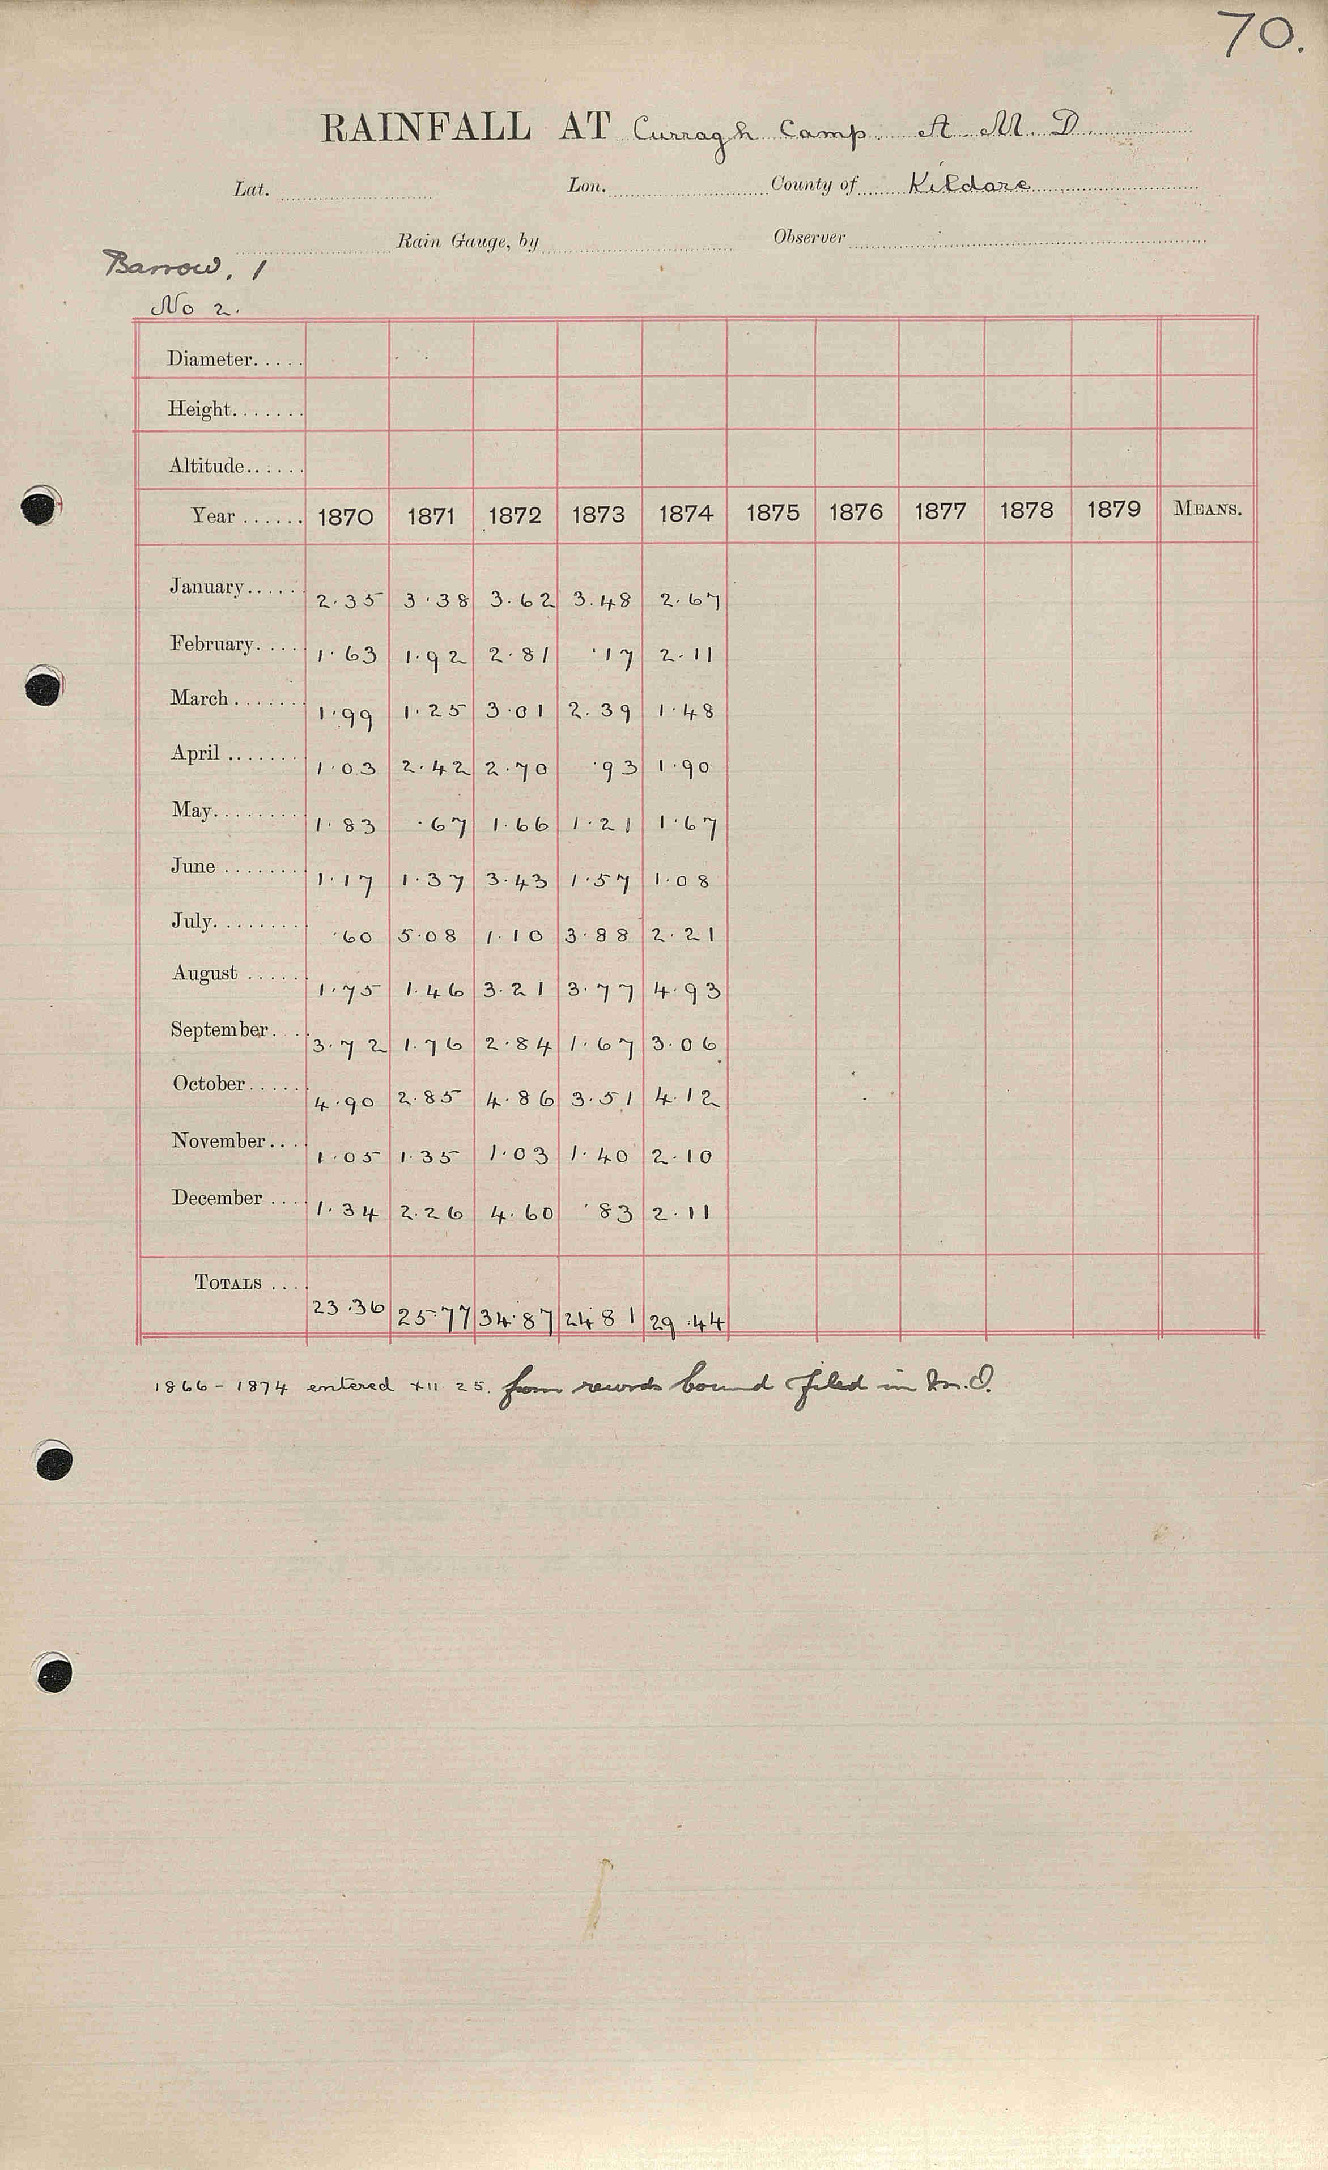 70.
RAINFALL AT Curragh Camp. A. M. D.
Lat. Lon. County of Kildare
Rain Gauge, by Observer
Barrow, 1
No 2.
Diameter.....
Height.......
Altitude......
Year ...... 1870 1871 1872 1873 1874 1875 1876 1877 1878 1879 MEANS.
January..... 2.35 3.38 3.62 3.48 2.67
February..... 1.63 1.92 2.81 .17 2.11
March ....... 1.99 1.25 3.01 2.39 1.48
April ........ 1.03 2.42 2.70 .93 1.90
May......... 1.83 .67 1.66 1.21 1.67
June ........ 1.17 1.37 3.43 1.57 1.08
July......... .60 5.08 1.10 3.88 2.21
August ...... 1.75 1.46 3.21 3.77 4.93
September.... 3.72 1.76 2.84 1.67 3.06
October...... 4.90 2.85 4.86 3.51 4.12
November.... 1.05 1.35 1.03 1.40 2.10
December .... 1.34 2.26 4.60 .83 2.11
TOTALS .... 23.36 25.77 34.87 24.81 29.44
1866-1874 entered XII 25. from records bound filed in M.O.